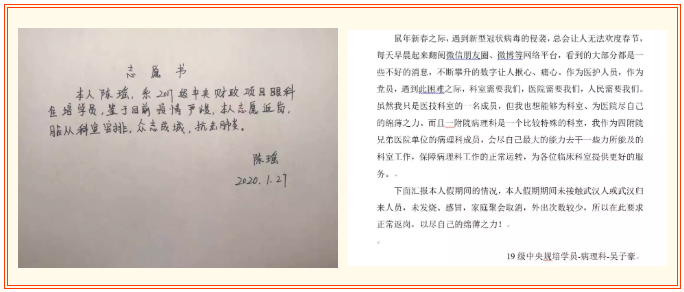 志愿书
本人陈瑶，系2017级中央财政项目眼科
住培学员，鉴于目前疫情严峻，本人志愿返岗，
服从科室安排，众志成城，抗击肺炎。
陈瑶
2020.1.27
鼠年新春之际，遇到新型冠状病毒的侵袭，总会让人无法欢度春节，
每天早晨起来翻阅微信朋友圈、微博等网络平台，看到的大部分都是一
些不好的消息，不断攀升的数字让人揪心、痛心。作为医护人员，作为
党员，遇到此困难之际，科室需要我们，医院需要我们，人民需要我们。
虽然我只是医技科室的一名成员，但我也想能够为科室、为医院尽自己
的绵薄之力。而且一附院病理科是一个比较特殊的科室，我作为四附院
兄弟医院单位的病理科成员，会尽自己最大的能力去干一些力所能及的
科室工作，保障病理科工作的正常运转，为各位临床科室提供更好的服
务。
下面汇报本人假期间的情况，本人假期期间未接触武汉人或武汉归
来人员，未发烧、感冒，家庭聚会取消，外出次数较少。所以在此要求
正常返岗，以尽自己的绵薄之力！
19级中央规培学员-病理科-吴子豪